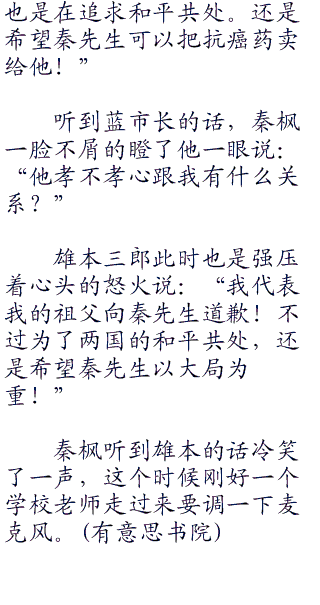 也是在追求和平共处。还是
希望秦先生可以把抗癌药卖
给他！”
听到蓝市长的话，秦枫
一脸不屑的瞪了他一眼说：
“他孝不孝心跟我有什么关
系？”
雄本三郎此时也是强压
着心头的怒火说：“我代表
我的祖父向秦先生道歉！不
过为了两国的和平共处，还
是希望秦先生以大局为
重！”
秦枫听到雄本的话冷笑
了一声，这个时候刚好一个
学校老师走过来要调一下麦
克风。(有意思书院)